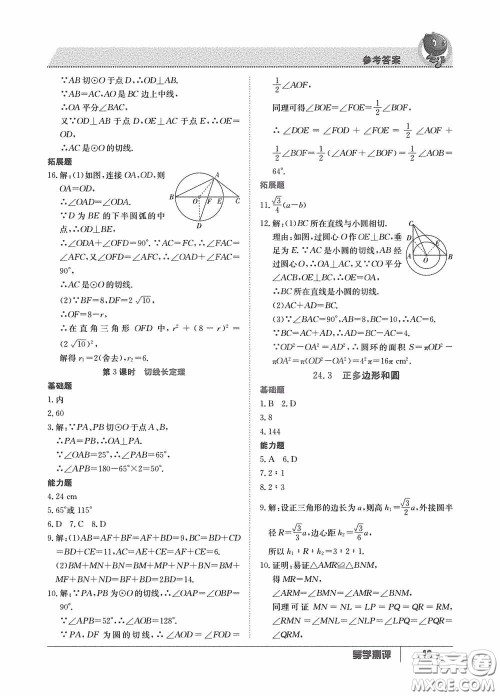 参考答案
∵AB切⊙O于点D,∴OD⊥AB.
∵AB=AC,AO是BC边上中线,
∴OA平分∠BAC,
又∵OD⊥AB于点D,OE⊥AC于点E,∴OE=
OD,
∴AC是⊙O的切线.
拓展题
16.解:(1)如图,连接OA,OD,则
OA=OD,
∴∠OAD=∠ODA.
∵D为BE的下半圆弧的中
点,∴OD⊥BE,
∴∠ODA+∠OFD=90°.∵AC=FC,∴∠FAC=
∠AFC,又∵∠OFD=∠AFC,∴∠OAD+∠FAC=
90°.
∴AC是⊙O的切线.
(2)∵BF=8,DF=2√10,
∴OF=8-r,
∴在直角三角形OFD中,r²+(8-r)²=
(2√10)²,
解得r₁=2(舍去),r₂=6.
第3课时 切线长定理
基础题
1.内
2.60
3.解:∵PA、PB切⊙O于点A、B,
∴PA=PB,∴OA⊥PA.
∵∠OAB=25°,∴∠PAB=65°,
∴∠APB=180-65°×2=50°.
能力题
4.24 cm
5.65°或115°
6.D 7.C 8.D
9.解:(1)AB=AF+BF=AF+BD=9,BC=BD+CD
=BD+CE=11,AC=AE+CE=AF+CE=6.
(2)BM+MN+BN=BM+MP+NP+BN=BM+
MF+BN+ND=BF+BD=2BD=14.
10.解:∵PA,PB为⊙O的切线,∴∠OAP=∠OBP=
90°.
∵∠APB=52°,∴∠AOB=128°.
∵PA,DF为圆的切线,∴∠AOD=∠FOD=
1/2∠AOF,
同理可得∠BOE=∠FOE=1/2∠BOF,
∴∠DOE=∠FOD+∠FOE=1/2∠AOF+
1/2∠BOF=1/2(∠AOF+∠BOF)=1/2∠AOB=
64°.
拓展题
11.√3/4(a-b)
12.解:(1)BC所在直线与小圆相切.
理由:如图,过圆心O作OE⊥BC,垂
足为E.∵AC是小圆的切线,AB经
过圆心O,∴OA⊥AC,又∵CO平分
∠ACB,OE⊥BC,∴OE=OA,
∴BC所在直线是小圆的切线.
(2)AC+AD=BC.
(3)∵∠BAC=90°,AB=8,BC=10,∴AC=6.
∵BC=AC+AD,∴AD=BC-AC=4.
∵OD²-OA²=AD²,∴圆环的面积S=πOD²-
πOA²=π(OD²-OA²)=4²π=16π cm².
24.3 正多边形和圆
基础题
1.B 2.D
3.8
4.144
能力题
5.A 6.D
7.2∶1
8.2∶3
9.解:设正三角形的边长为a,则高h₁=√3/2a,外接圆半
径R=√3/3a,边心距h₂=√3/6a,
所以h₁∶R∶h₂=3∶2∶1.
10.证明:易证△AMR≌△BNM,
得MR=MN,
∠ARM=∠BMN=∠AMR=∠BNM,
同理可证MN=NL=LP=PQ=QR=RM,
∠RMN=∠MNL=∠NLP=∠LPQ=∠PQR=
∠QRM,
易学测评